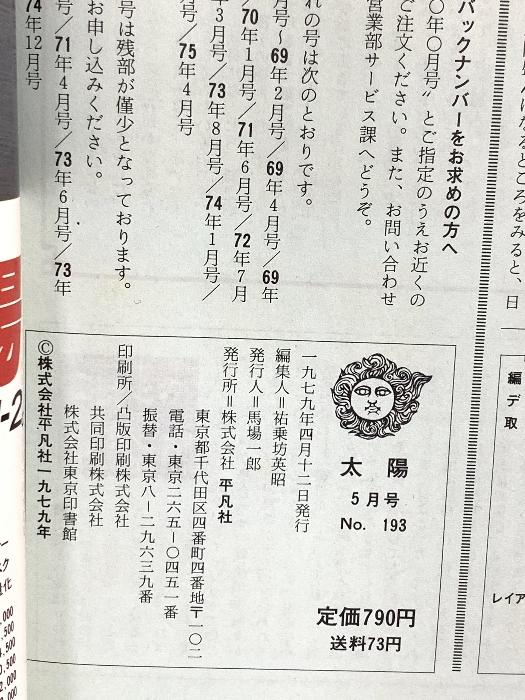 バックナンバーをお求めの方へ
〇年〇月号〟とご指定のうえお近くの
ご注文ください。また、お問い合わせ
営業部サービス課へどうぞ。
れの号は次のとおりです。
月号〜69年2月号/69年4月号/69年
/70年1月号/71年6月号/72年7月
年3月号/73年8月号/74年1月号/
/75年4月号
号は残部が僅少となっております。
お申し込みください。
/71年4月号/73年6月号/73年
74年12月号
太陽
5月号
No. 193
定価790円
送料73円
一九七九年四月十二日発行
編集人=祐乗坊英昭
発行人=馬場一郎
発行所=株式会社 平凡社
東京都千代田区四番町四番地〒一〇二
電話・東京二六五-〇四五一番
振替・東京八-二九六三九番
印刷所/凸版印刷株式会社
共同印刷株式会社
株式会社東京印書館
©株式会社平凡社一九七九年
るところをみると、日
編
デ
取
レイア